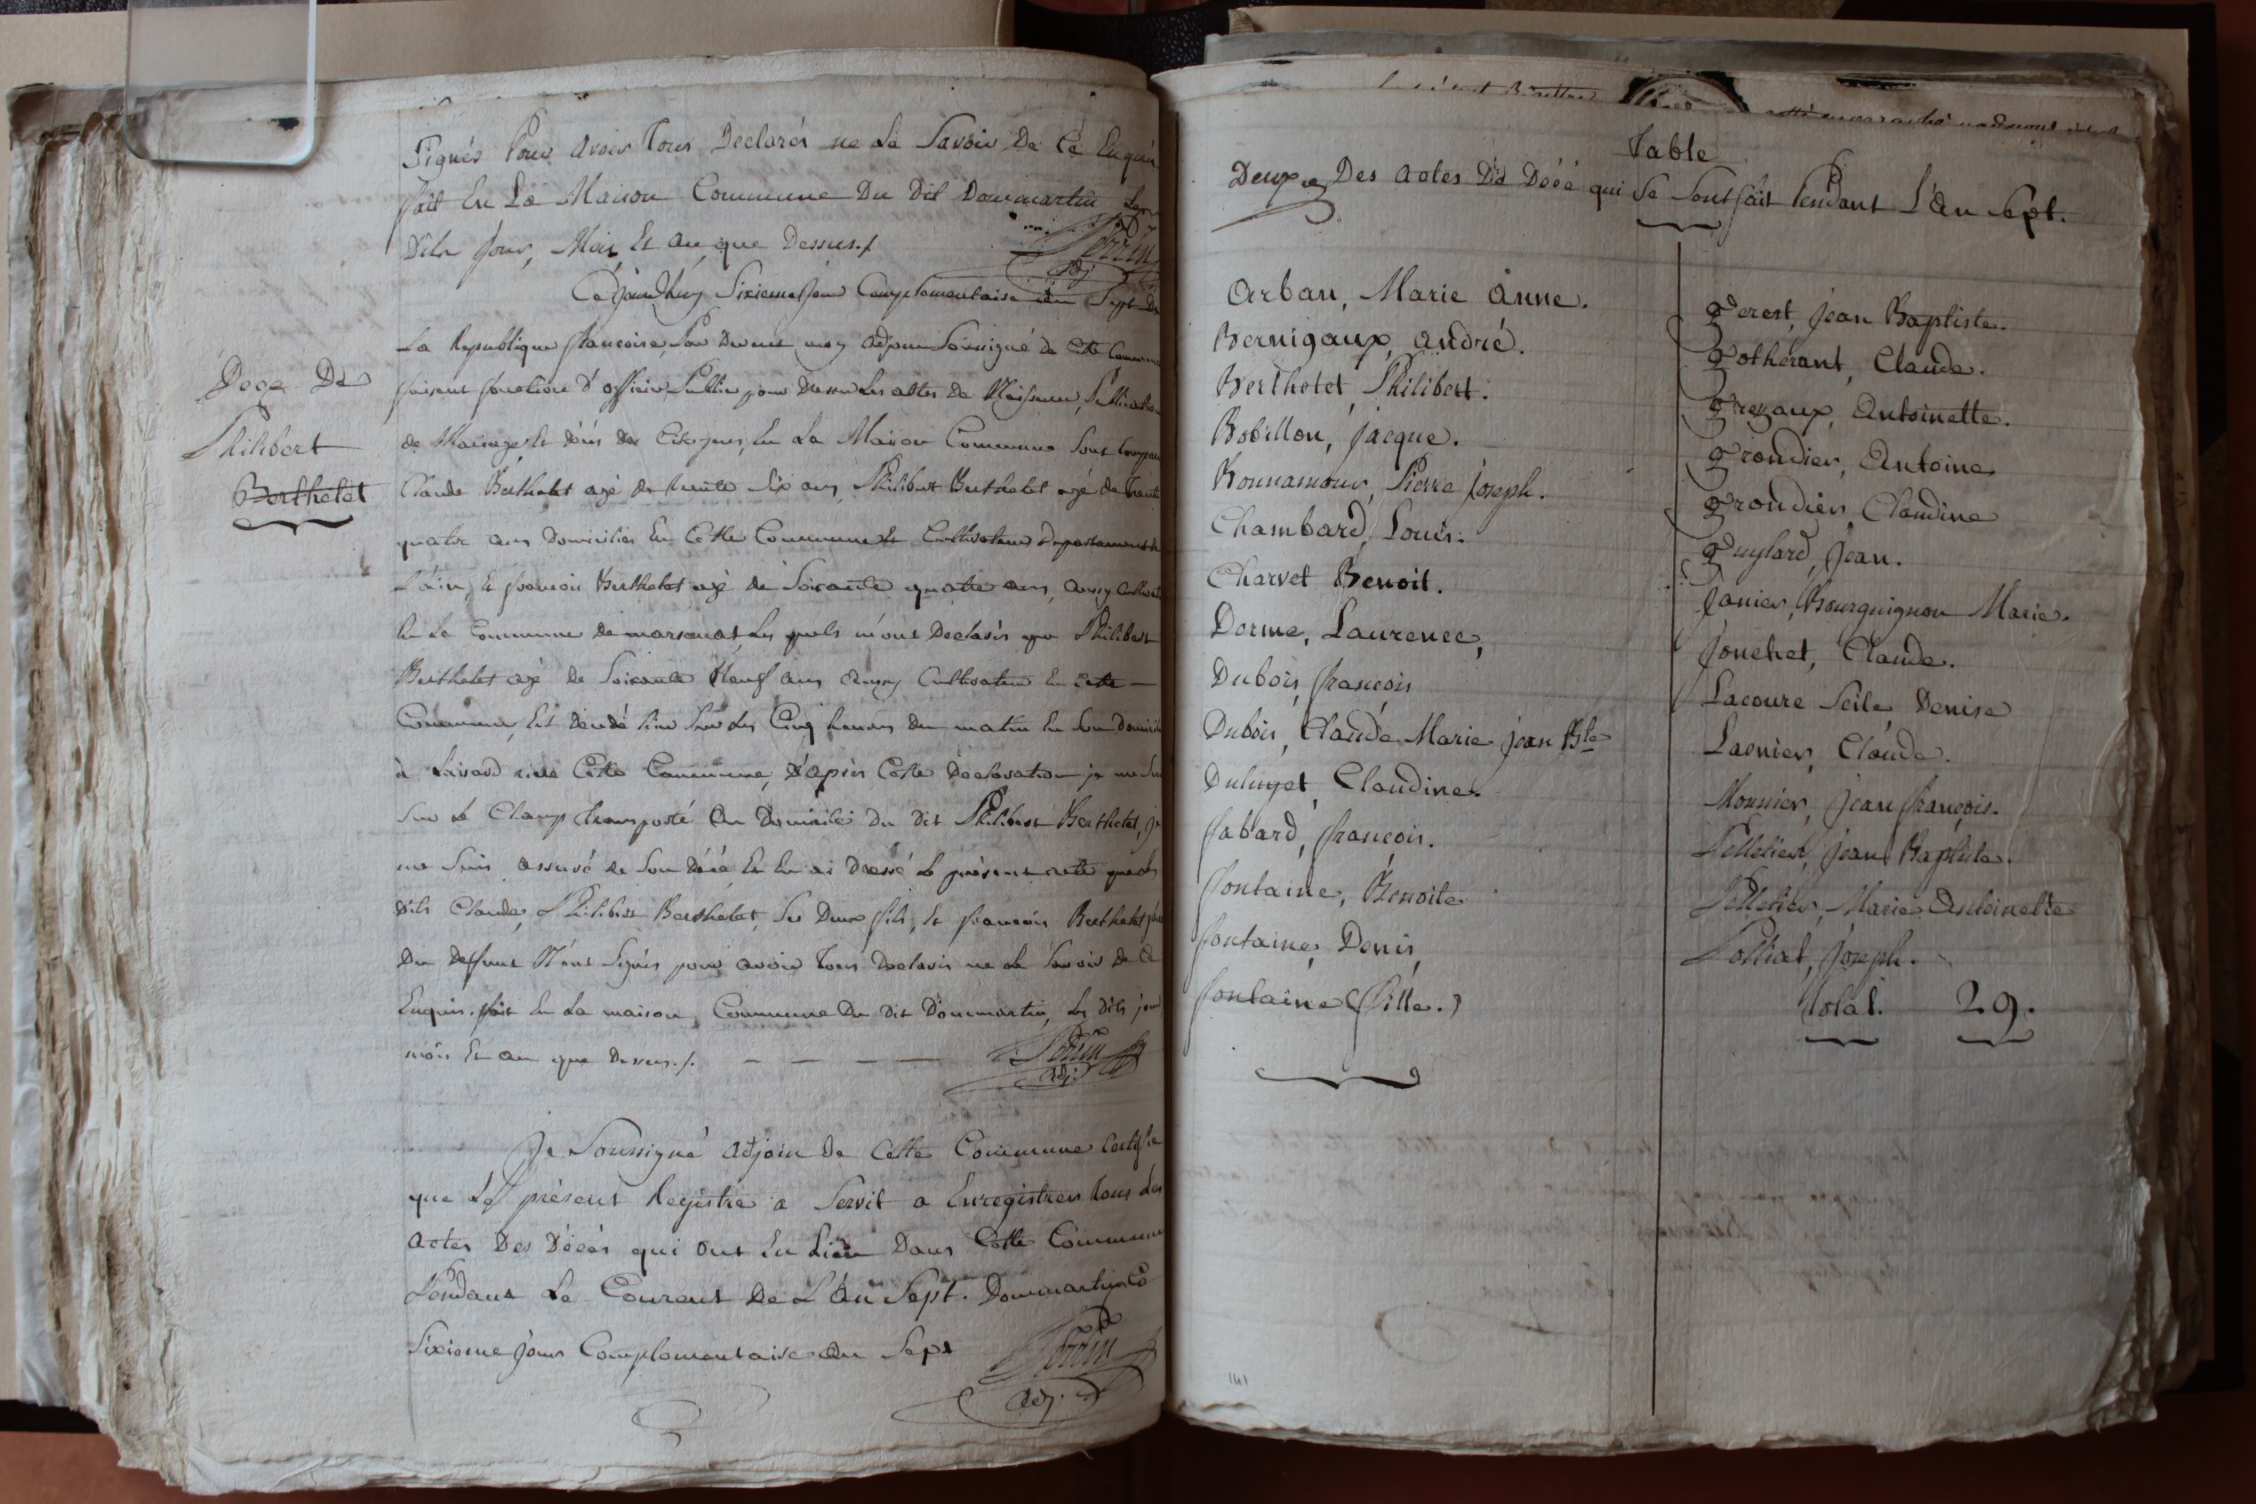 Signés Pour avoir Tous Declarés ne Le Savoir De Ce Enquis
fait En La Maison Commune Du Dit Dommartin Les
Dits Jour, Mois, Et an que Dessus ./.
Perrin
adj
Cejourdhuy Sixieme Jour Complementaire an Sept De
La Republique francoise, Par Devant moy adjoin Soussigné de Cette Commune
faisant fonctions d'officier Public pour Dresser Les actes De Naissance, Publication
de Mariage, Et Décés Des Citoyens, En La Maison Commune Sont Comparu
Claude Berthelet agé de trente Six ans, Philibert Berthelet agé de trente
quatre ans Domiciliés En Cette Commune Et Cultivateurs Departement de
L'ain, Et francois Berthelet agé de Soixante quatre ans, aussy Cultivateur
En La Commune de marsonat, Les quels m'ont Declarés que Philibert
Berthelet agé de Soixante Neuf ans aussy Cultivateur En Cette
Commune, Est Décédé hier Sur Les Cinq heures du matin En Son Domicile
à Cette Commune, D'après Cette Declaration je me Suis
Sur Le Champ transporté au Domicile Du Dit Philibert Berthelet, je
me Suis assuré de Son Décé, Et En ai Dressé Le présent acte que Les
Dits Claude, Philibert Berthelet, Ses Deux fils, Et francois Berthelet frere
Du Deffunt N'ont Signés pour avoir Tous Declarés ne Le Savoir De Ce
Enquis. fait En La maison Commune Du Dit Dommartin, Les Dits jour
mois Et an que Dessus ./.
Perrin
adj
Décé De
Philibert
Berthelet
Je Soussigné adjoin De Cette Commune Certifie
que Le présent Registre a Servit a Enregistrer tous Les
actes Des Décés qui ont Eu Lieu Dans Cette Commune
Pendant Le Courent De L'an Sept. Dommartin Ce
Sixieme Jour Complementaire an Sept
Perrin
adj.
Table
Des actes De Décé qui Se Sont fait Pendant L'an Sept.
Arban, Marie Anne.
Bernigaux, André.
Berthelet, Philibert.
Bobillon, Jacque.
Bonnamour, Pierre Joseph.
Chambard, Louis.
Charvet Benoit.
Dorme, Laurence,
Dubois, francois
Dubois, Claude Marie Jean Bte
Duluyet, Claudine.
fabard, francois.
fontaine, Benoite
fontaine, Denis,
fontaine (fille.)
gerest, Jean Baptiste.
gotherant, Claude.
grezaux, Antoinette.
grondier, Antoine
grondier, Claudine
guylard, Jean.
Janier, Bourguignon Marie.
Jouchet, Claude.
Lacoure Seile, Denise
Lasnier, Claude.
Monnier, Jean françois.
Pelletier, Jean Baptiste.
Pelletier, Marie Antoinette
Polliat, Joseph.
total. 29.
141